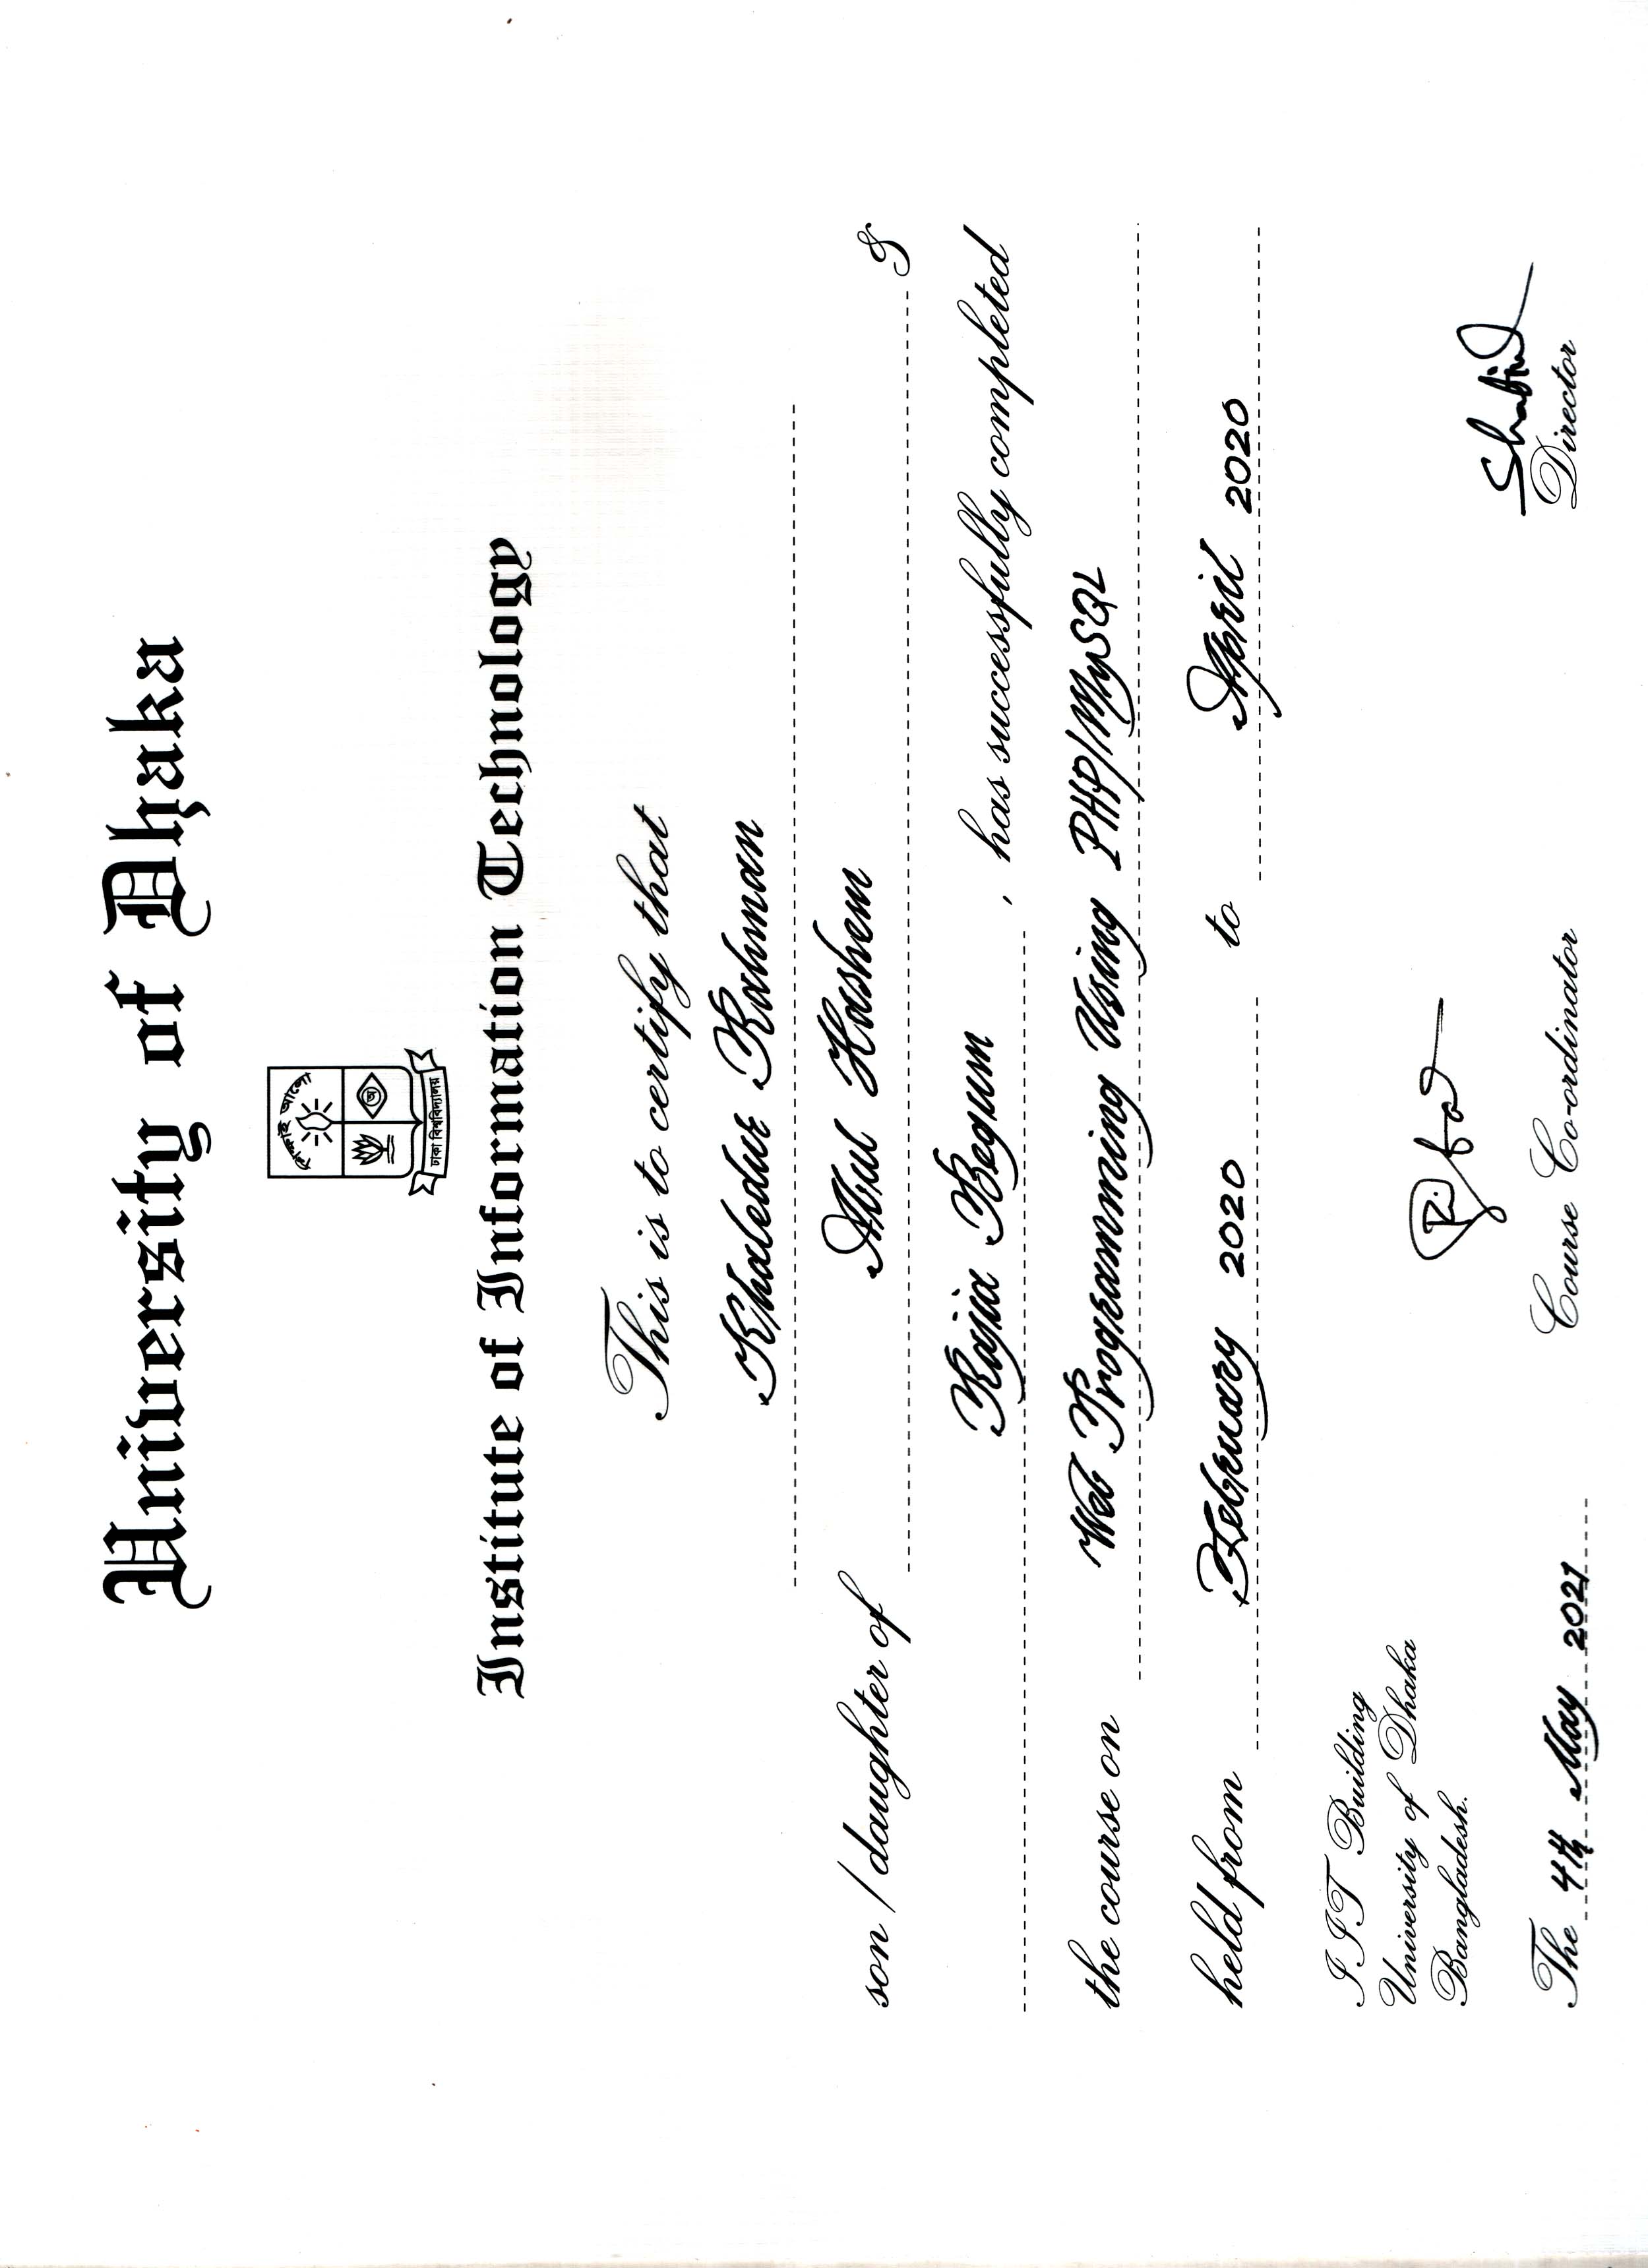 University of Dhaka
শিক্ষাই আলো
অ
ঢাকা বিশ্ববিদ্যালয়
Institute of Information Technology
This is to certify that
Khaledur Rahman
son / daughter of Abul Hashem &
Rajia Begum , has successfully completed
the course on Web Programming Using PHP/MySQL
held from February 2020 to April 2020
IIT Building
University of Dhaka
Bangladesh.
The 4th May 2021
Course Co-ordinator
Director